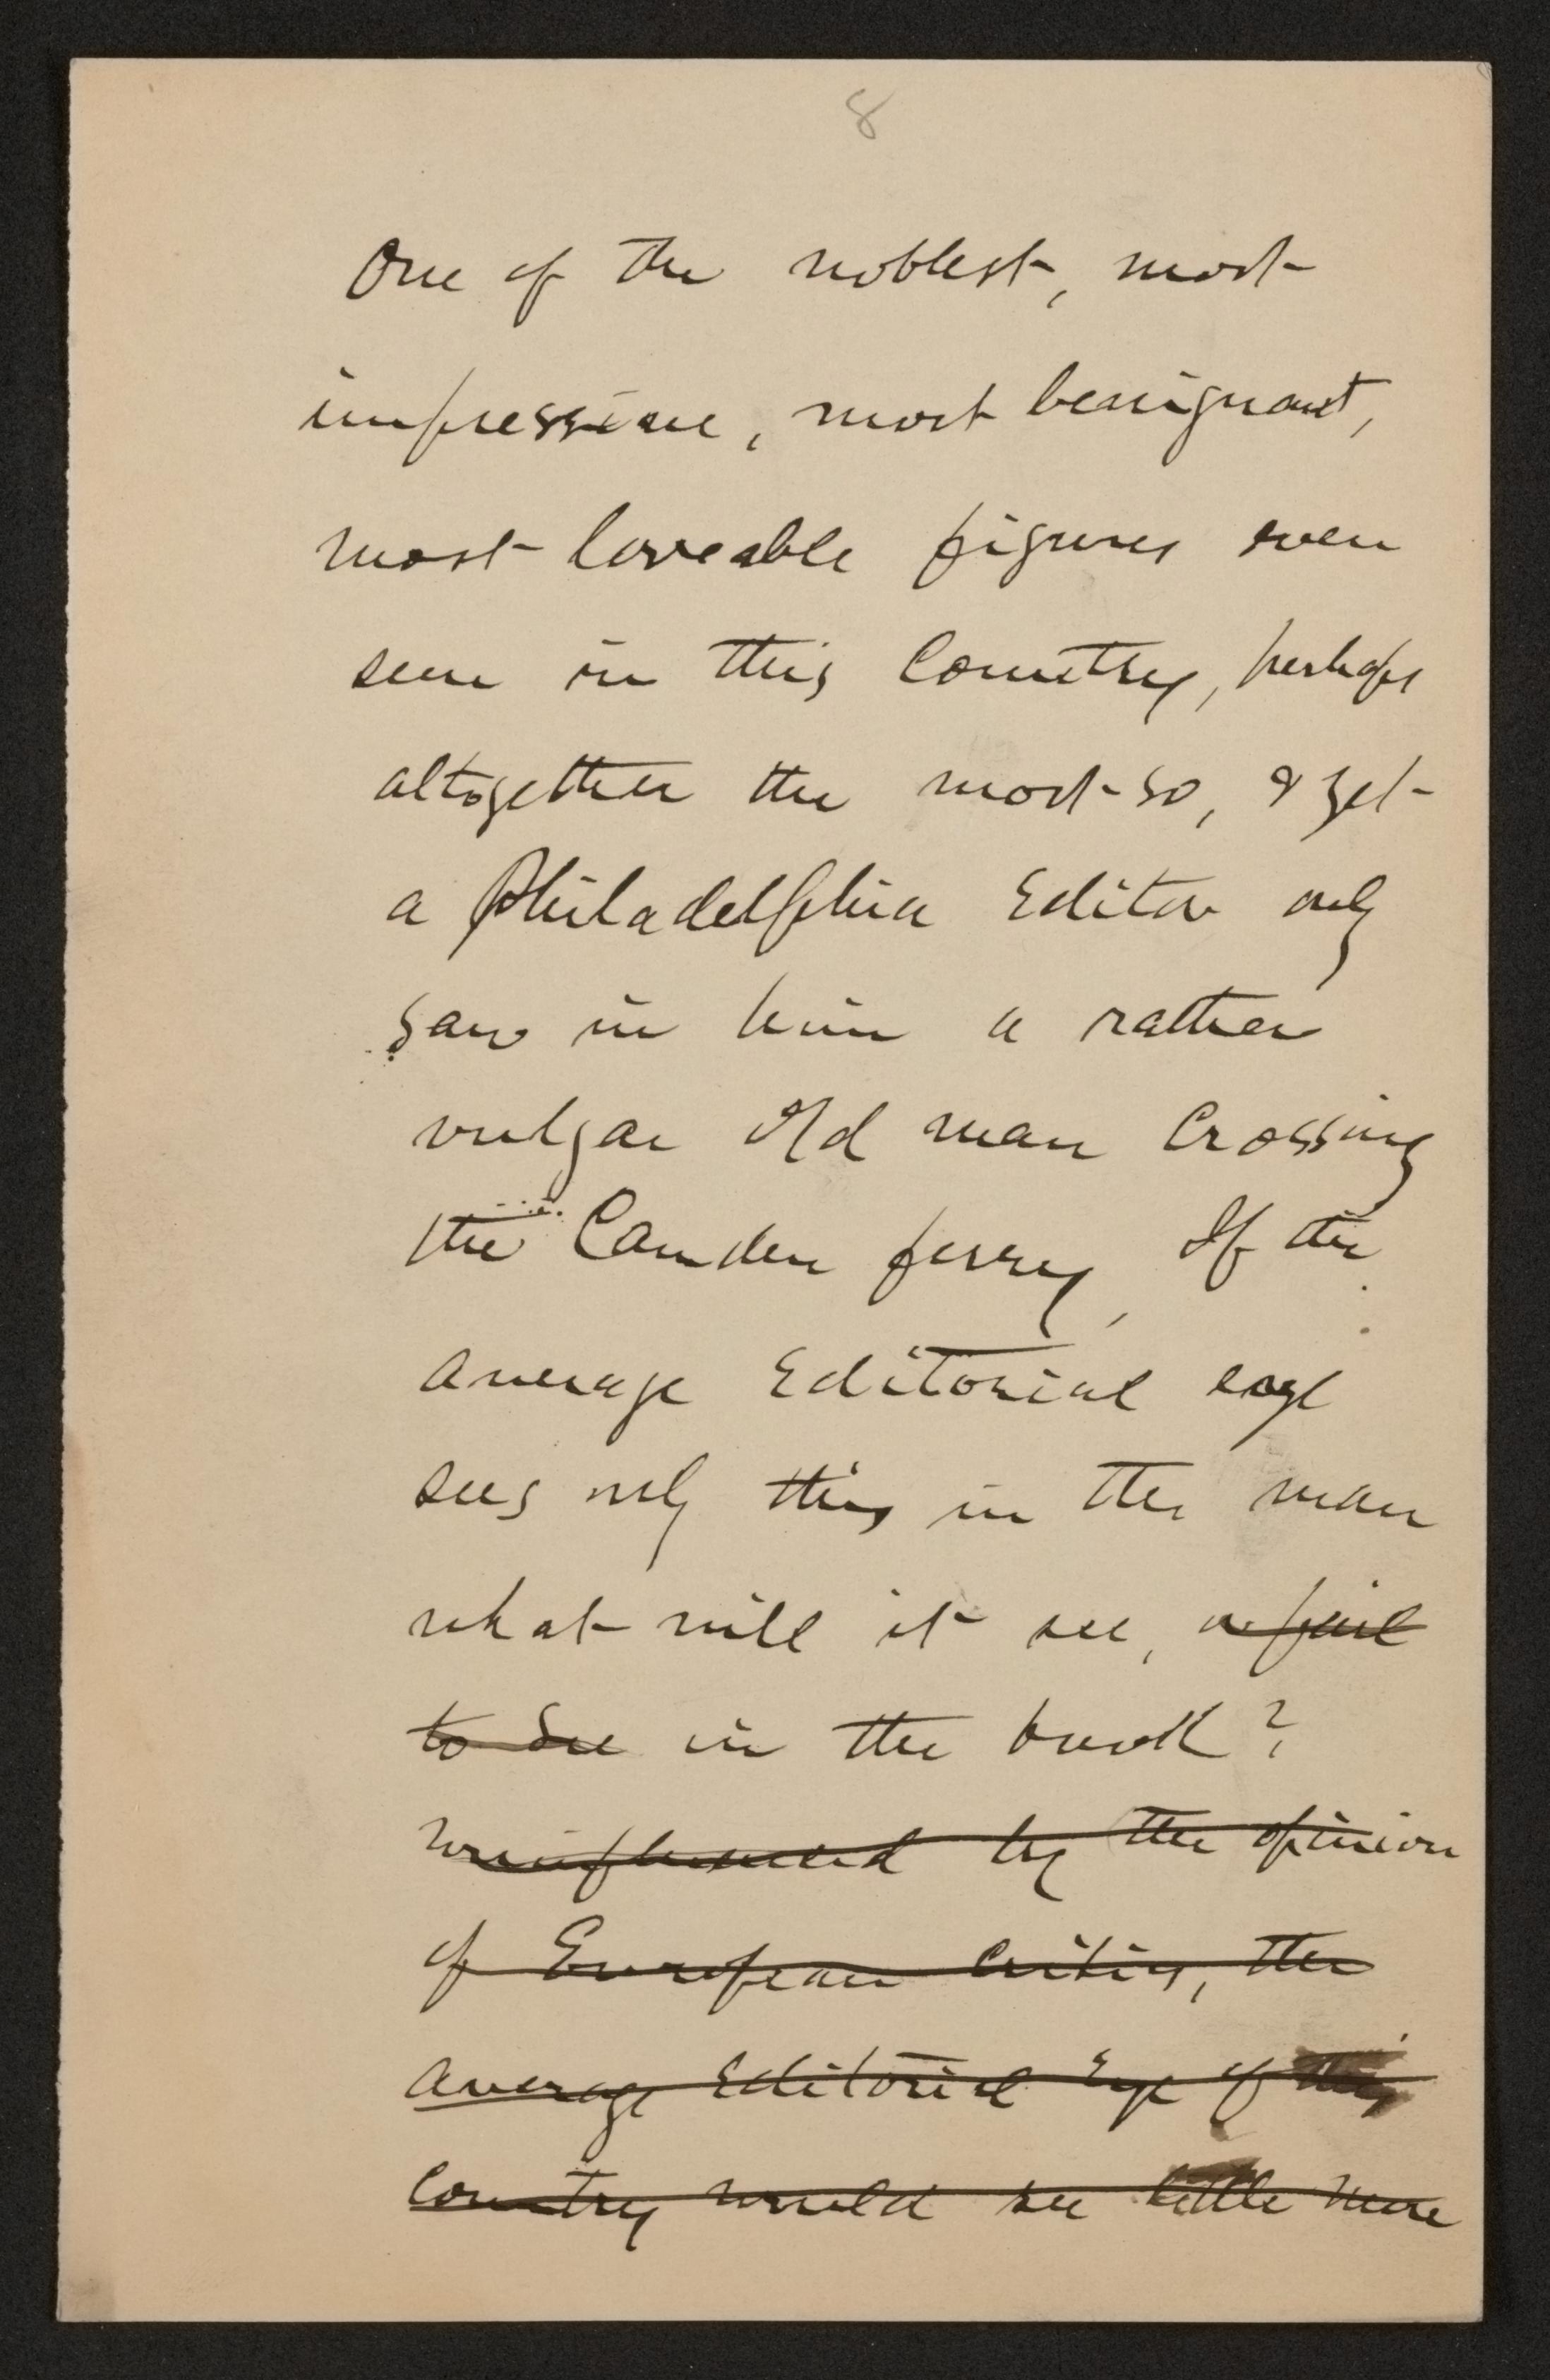 8
One of the noblest, most
impressive, most benignant,
most loveable figures ever
seen in this Country, perhaps
altogether the most so, & yet
a Philadelphia Editor only
saw in him a rather
vulgar Old man Crossing
the Camden ferry, If the
average Editorial eye
sees only this in the man
what will it see, or fail
to see in the book?
uninfluenced by the opinion
of European Critics, the
average Editorial Eye of this
Country would see little more